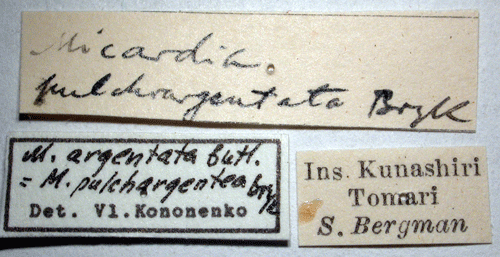 Micardia.
pulchrargentata Bryk
M. argentata Butl.
= M. pulchargentea Bryk
Det. Vl. Kononenko
Ins. Kunashiri
Tomari
S. Bergman